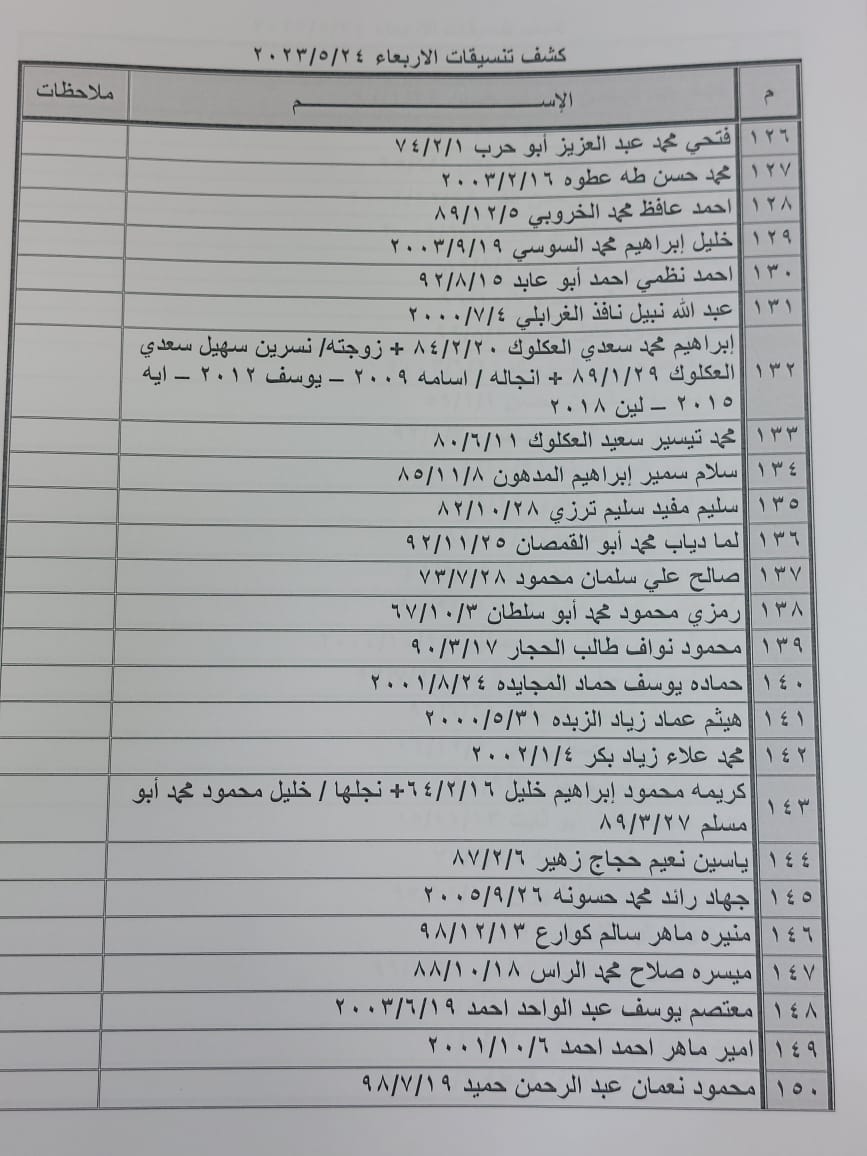 كشف تنسيقات الاربعاء ٢٠٢٣/٥/٢٤
م الإســـــــــــم ملاحظات
١٢٦ فتحي محمد عبد العزيز أبو حرب ٧٤/٢/١
١٢٧ محمد حسن طه عطوه ٢٠٠٣/٢/١٦
١٢٨ احمد عافظ محمد الخروبي ٨٩/١٢/٥
١٢٩ خليل إبراهيم محمد السوسي ٢٠٠٣/٩/١٩
١٣٠ احمد نظمي احمد أبو عابد ٩٢/٨/١٥
١٣١ عبد الله نبيل نافذ الغرابلي ٢٠٠٠/٧/٤
١٣٢ إبراهيم محمد سعدي العكلوك ٨٤/٢/٢٠ + زوجته/ نسرين سهيل سعدي
العكلوك ٨٩/١/٢٩ + انجاله / اسامه ٢٠٠٩ – يوسف ٢٠١٢ – ايه
٢٠١٥ – لين ٢٠١٨
١٣٣ محمد تيسير سعيد العكلوك ٨٠/٦/١١
١٣٤ سلام سمير إبراهيم المدهون ٨٥/١١/٨
١٣٥ سليم مفيد سليم ترزي ٨٢/١٠/٢٨
١٣٦ لما دياب محمد أبو القمصان ٩٢/١١/٢٥
١٣٧ صالح علي سلمان محمود ٧٣/٧/٢٨
١٣٨ رمزي محمود محمد أبو سلطان ٦٧/١٠/٣
١٣٩ محمود نواف طالب الحجار ٩٠/٣/١٧
١٤٠ حماده يوسف حماد المجايده ٢٠٠١/٨/٢٤
١٤١ هيثم عماد زياد الزبده ٢٠٠٠/٥/٣١
١٤٢ محمد علاء زياد بكر ٢٠٠٢/١/٤
١٤٣ كريمه محمود إبراهيم خليل ٦٤/٢/١٦+ نجلها / خليل محمود محمد أبو
مسلم ٨٩/٣/٢٧
١٤٤ ياسين نعيم حجاج زهير ٨٧/٢/٦
١٤٥ جهاد رائد محمد حسونه ٢٠٠٥/٩/٢٦
١٤٦ منيره ماهر سالم كوارع ٩٨/١٢/١٣
١٤٧ ميسره صلاح محمد الراس ٨٨/١٠/١٨
١٤٨ معتصم يوسف عبد الواحد احمد ٢٠٠٣/٦/١٩
١٤٩ امير ماهر احمد احمد ٢٠٠١/١٠/٦
١٥٠ محمود نعمان عبد الرحمن حميد ٩٨/٧/١٩